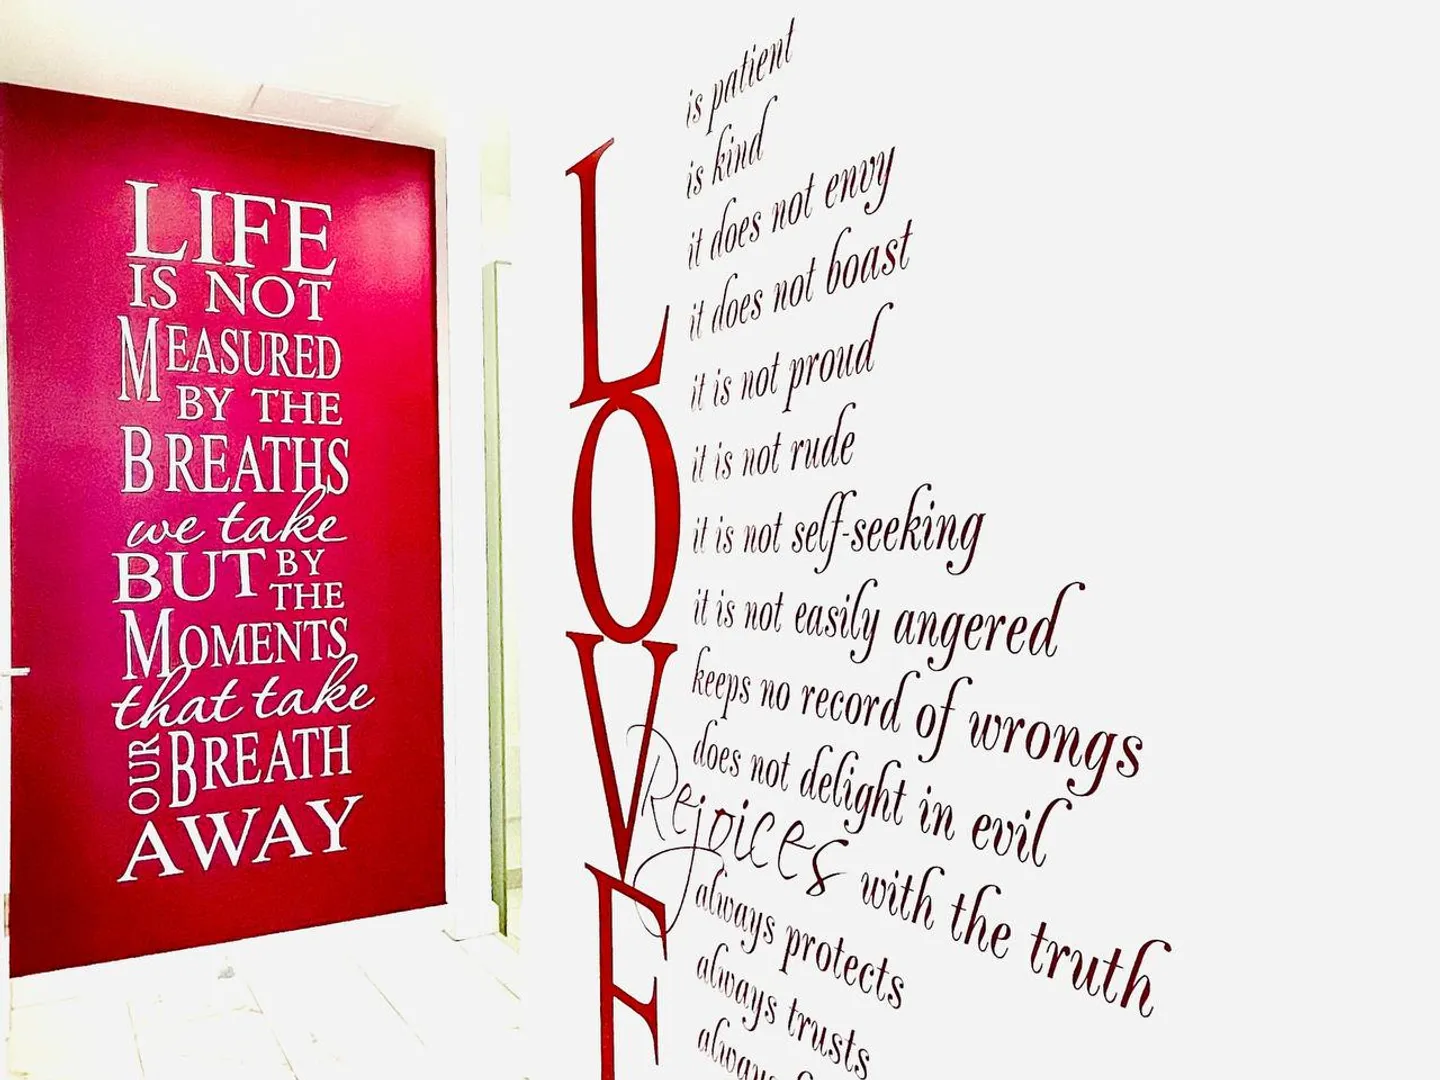 LIFE
IS NOT
MEASURED
BY THE
BREATHS
we take
BUT BY
THE
MOMENTS
that take
OUR BREATH
AWAY
LOVE
is patient
is kind
it does not envy
it does not boast
it is not proud
it is not rude
it is not self-seeking
it is not easily angered
keeps no record of wrongs
does not delight in evil
Rejoices with the truth
always protects
always trusts
always